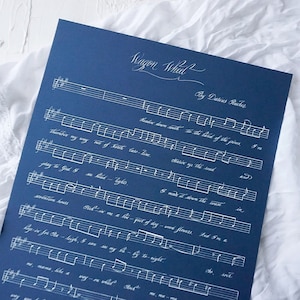 Wagon Wheel
By Darius Rucker
Headin down south to the land of the pines I'm
thumbin my way out of North Caro-lina
Starin up the road and
pray to God I see head lights
I made it down the coast in
seventeen hours
Pick-in me a bou-quet of dog-wood flowers And I'm a
hop-in for Ra-leigh, I can see my ba-by to-night
So rock
me mama like a wag-on wheel Rock
me ma-ma any